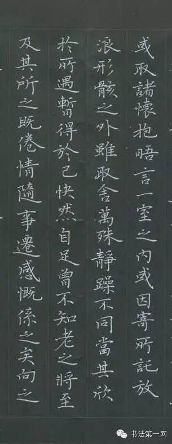 或取諸懷抱晤言一室之內或因寄所託放
浪形骸之外雖取舍萬殊靜躁不同當其欣
於所遇暫得於己快然自足曾不知老之將至
及其所之既倦情隨事遷感慨係之矣向之
书法第一网